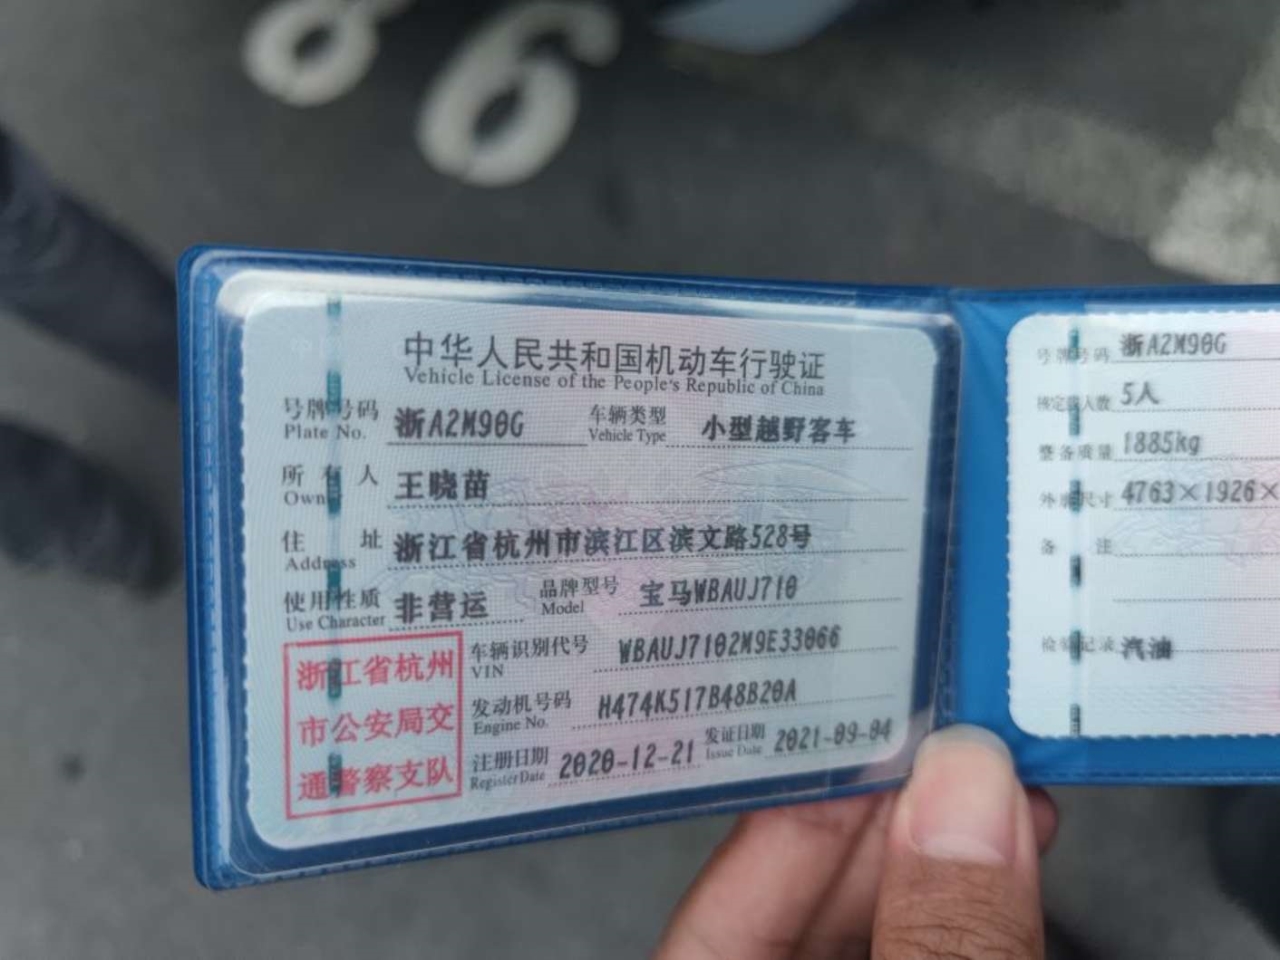 86
中华人民共和国机动车行驶证
Vehicle License of the People's Republic of China
号牌号码 浙A2M90G 车辆类型 小型越野客车
Plate No. Vehicle Type
所有人 王晓苗
Owner
住址 浙江省杭州市滨江区滨文路528号
Address
使用性质 非营运 品牌型号 宝马WBAUJ710
Use Character Model
浙江省杭州
市公安局交
通警察支队
车辆识别代号 WBAUJ7102M9E33066
VIN
发动机号码 H474K517B48B20A
Engine No.
注册日期 2020-12-21 发证日期 2021-09-04
Register Date Issue Date
号牌号码 浙A2M90G
核定载人数 5人
整备质量 1885kg
外廓尺寸 4763×1926×
备注
检验记录 汽油